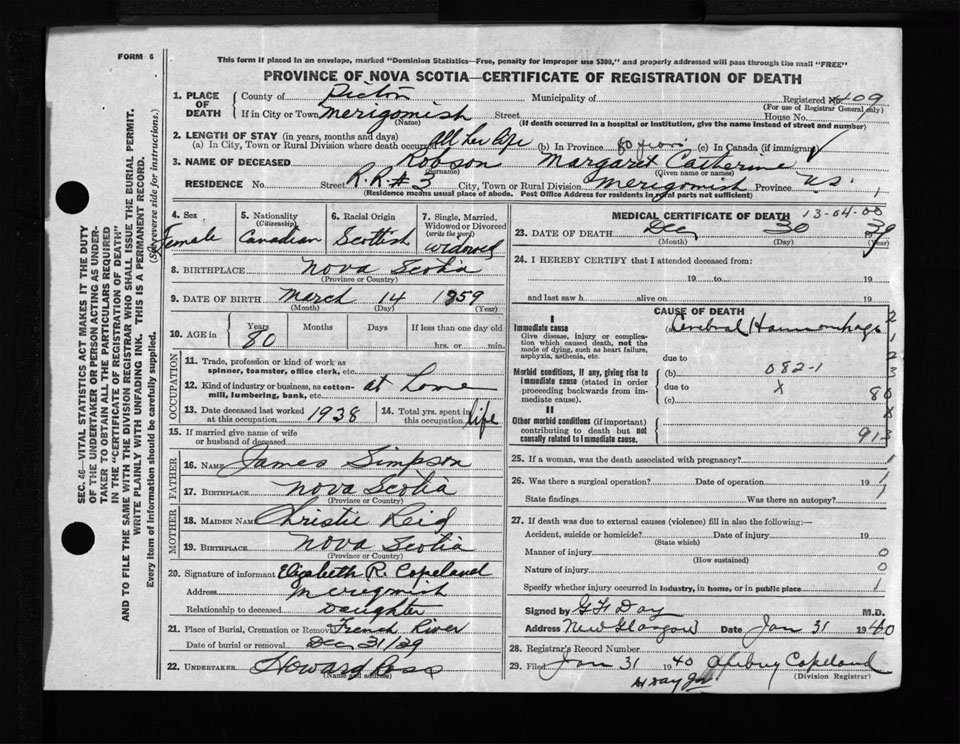 FORM 6
This form if placed in an envelope, marked "Dominion Statistics—Free, penalty for improper use $300," and properly addressed will pass through the mail "FREE"
PROVINCE OF NOVA SCOTIA—CERTIFICATE OF REGISTRATION OF DEATH
1. PLACE OF DEATH
County of Pictou Municipality of Registered No. 409
(For use of Registrar General only)
If in City or Town Merigomish Street House No.
(Name) (If death occurred in a hospital or institution, give the name instead of street and number)
2. LENGTH OF STAY (in years, months and days)
(a) In City, Town or Rural Division where death occurred All her life (b) In Province 80 years (c) In Canada (if immigrant)
3. NAME OF DECEASED Robson Margaret Catherine
(Surname) (Given name or names)
RESIDENCE No. Street R.R. # 3 City, Town or Rural Division Merigomish Province N.S.
(Residence means usual place of abode. Post Office Address for residents in rural parts not sufficient)
4. Sex
Female
5. Nationality (Citizenship)
Canadian
6. Racial Origin
Scottish
7. Single, Married, Widowed or Divorced (write the word)
widowed
8. BIRTHPLACE Nova Scotia
(Province or Country)
9. DATE OF BIRTH March 14 1859
(Month) (Day) (Year)
10. AGE in Years Months Days If less than one day old
80 hrs. or min.
OCCUPATION
11. Trade, profession or kind of work as spinner, teamster, office clerk, etc.
12. Kind of industry or business, as cotton-mill, lumbering, bank, etc. at home
13. Date deceased last worked at this occupation 1938
14. Total yrs. spent in this occupation life
15. If married give name of wife or husband of deceased
FATHER
16. NAME James Simpson
17. BIRTHPLACE Nova Scotia
(Province or Country)
MOTHER
18. MAIDEN NAME Christie Reid
19. BIRTHPLACE Nova Scotia
(Province or Country)
20. Signature of informant Elizabeth R. Copeland
Address Merigomish
Relationship to deceased Daughter
21. Place of Burial, Cremation or Removal French River
Date of burial or removal Dec 31/39
22. UNDERTAKER Howard Ross
(Name and address)
MEDICAL CERTIFICATE OF DEATH 13-04-00
23. DATE OF DEATH Dec 30 39
(Month) (Day) (Year)
24. I HEREBY CERTIFY that I attended deceased from:
19 to 19
and last saw h alive on 19
CAUSE OF DEATH
I
Immediate cause (a) Cerebral Haemorrhage
Give disease, injury or complication which caused death, not the mode of dying, such as heart failure, asphyxia, asthenia, etc.
due to
Morbid conditions, if any, giving rise to immediate cause (stated in order proceeding backwards from immediate cause).
(b) 082-1
due to X
(c) 80
II
Other morbid conditions (if important) contributing to death but not causally related to immediate cause.
913
2
1
2
3
25. If a woman, was the death associated with pregnancy? 1
26. Was there a surgical operation? Date of operation 19 1
State findings Was there an autopsy? 1
27. If death was due to external causes (violence) fill in also the following:—
Accident, suicide or homicide? Date of injury 19
(State which)
Manner of injury 0
(How sustained)
Nature of injury 0
Specify whether injury occurred in industry, in home, or in public place 1
Signed by G F Day M.D.
Address New Glasgow Date Jan 31 1940
28. Registrar's Record Number
29. Filed Jan 31 1940 Copeland
(Division Registrar)
SEC. 46— VITAL STATISTICS ACT MAKES IT THE DUTY
OF THE UNDERTAKER OR PERSON ACTING AS UNDER-
TAKER TO OBTAIN ALL THE PARTICULARS REQUIRED
IN THE "CERTIFICATE OF REGISTRATION OF DEATH"
AND TO FILE THE SAME WITH THE DIVISION REGISTRAR WHO SHALL ISSUE THE BURIAL PERMIT.
WRITE PLAINLY WITH UNFADING INK. THIS IS A PERMANENT RECORD.
Every item of information should be carefully supplied. (See reverse side for instructions.)